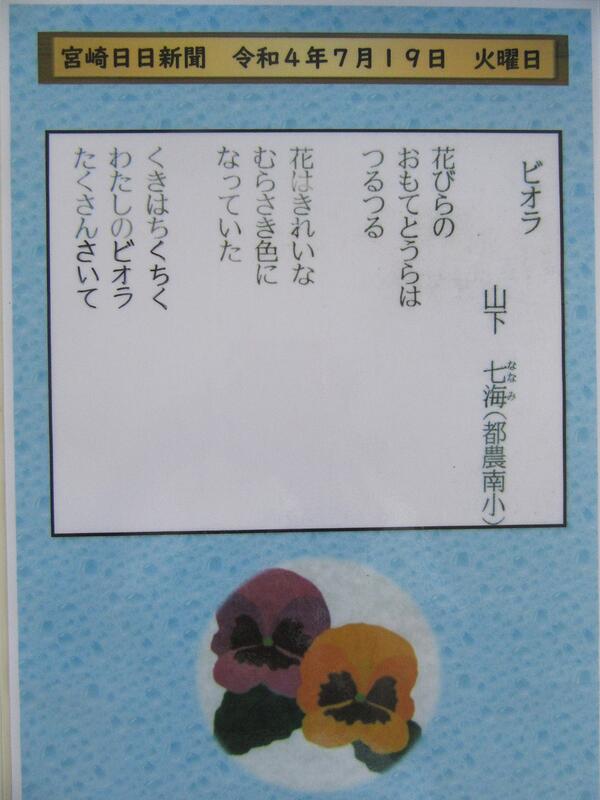 宮崎日日新聞　令和４年７月１９日　火曜日
ビオラ
山下　七海（都農南小）
ななみ
花びらの
おもてとうらは
つるつる
花はきれいな
むらさき色に
なっていた
くきはちくちく
わたしのビオラ
たくさんさいて